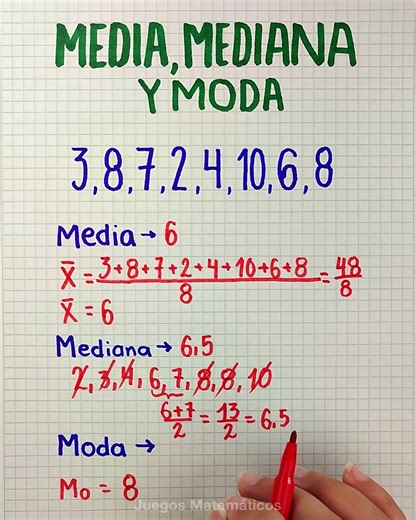 MEDIA, MEDIANA
Y MODA
3, 8, 7, 2, 4, 10, 6, 8
Media → 6
X̄ = 3+8+7+2+4+10+6+8 / 8 = 48 / 8
X̄ = 6
Mediana → 6,5
2, 3, 4, 6, 7, 8, 8, 10
6+7 / 2 = 13 / 2 = 6,5
Moda →
Mo = 8
Juegos Matemáticos